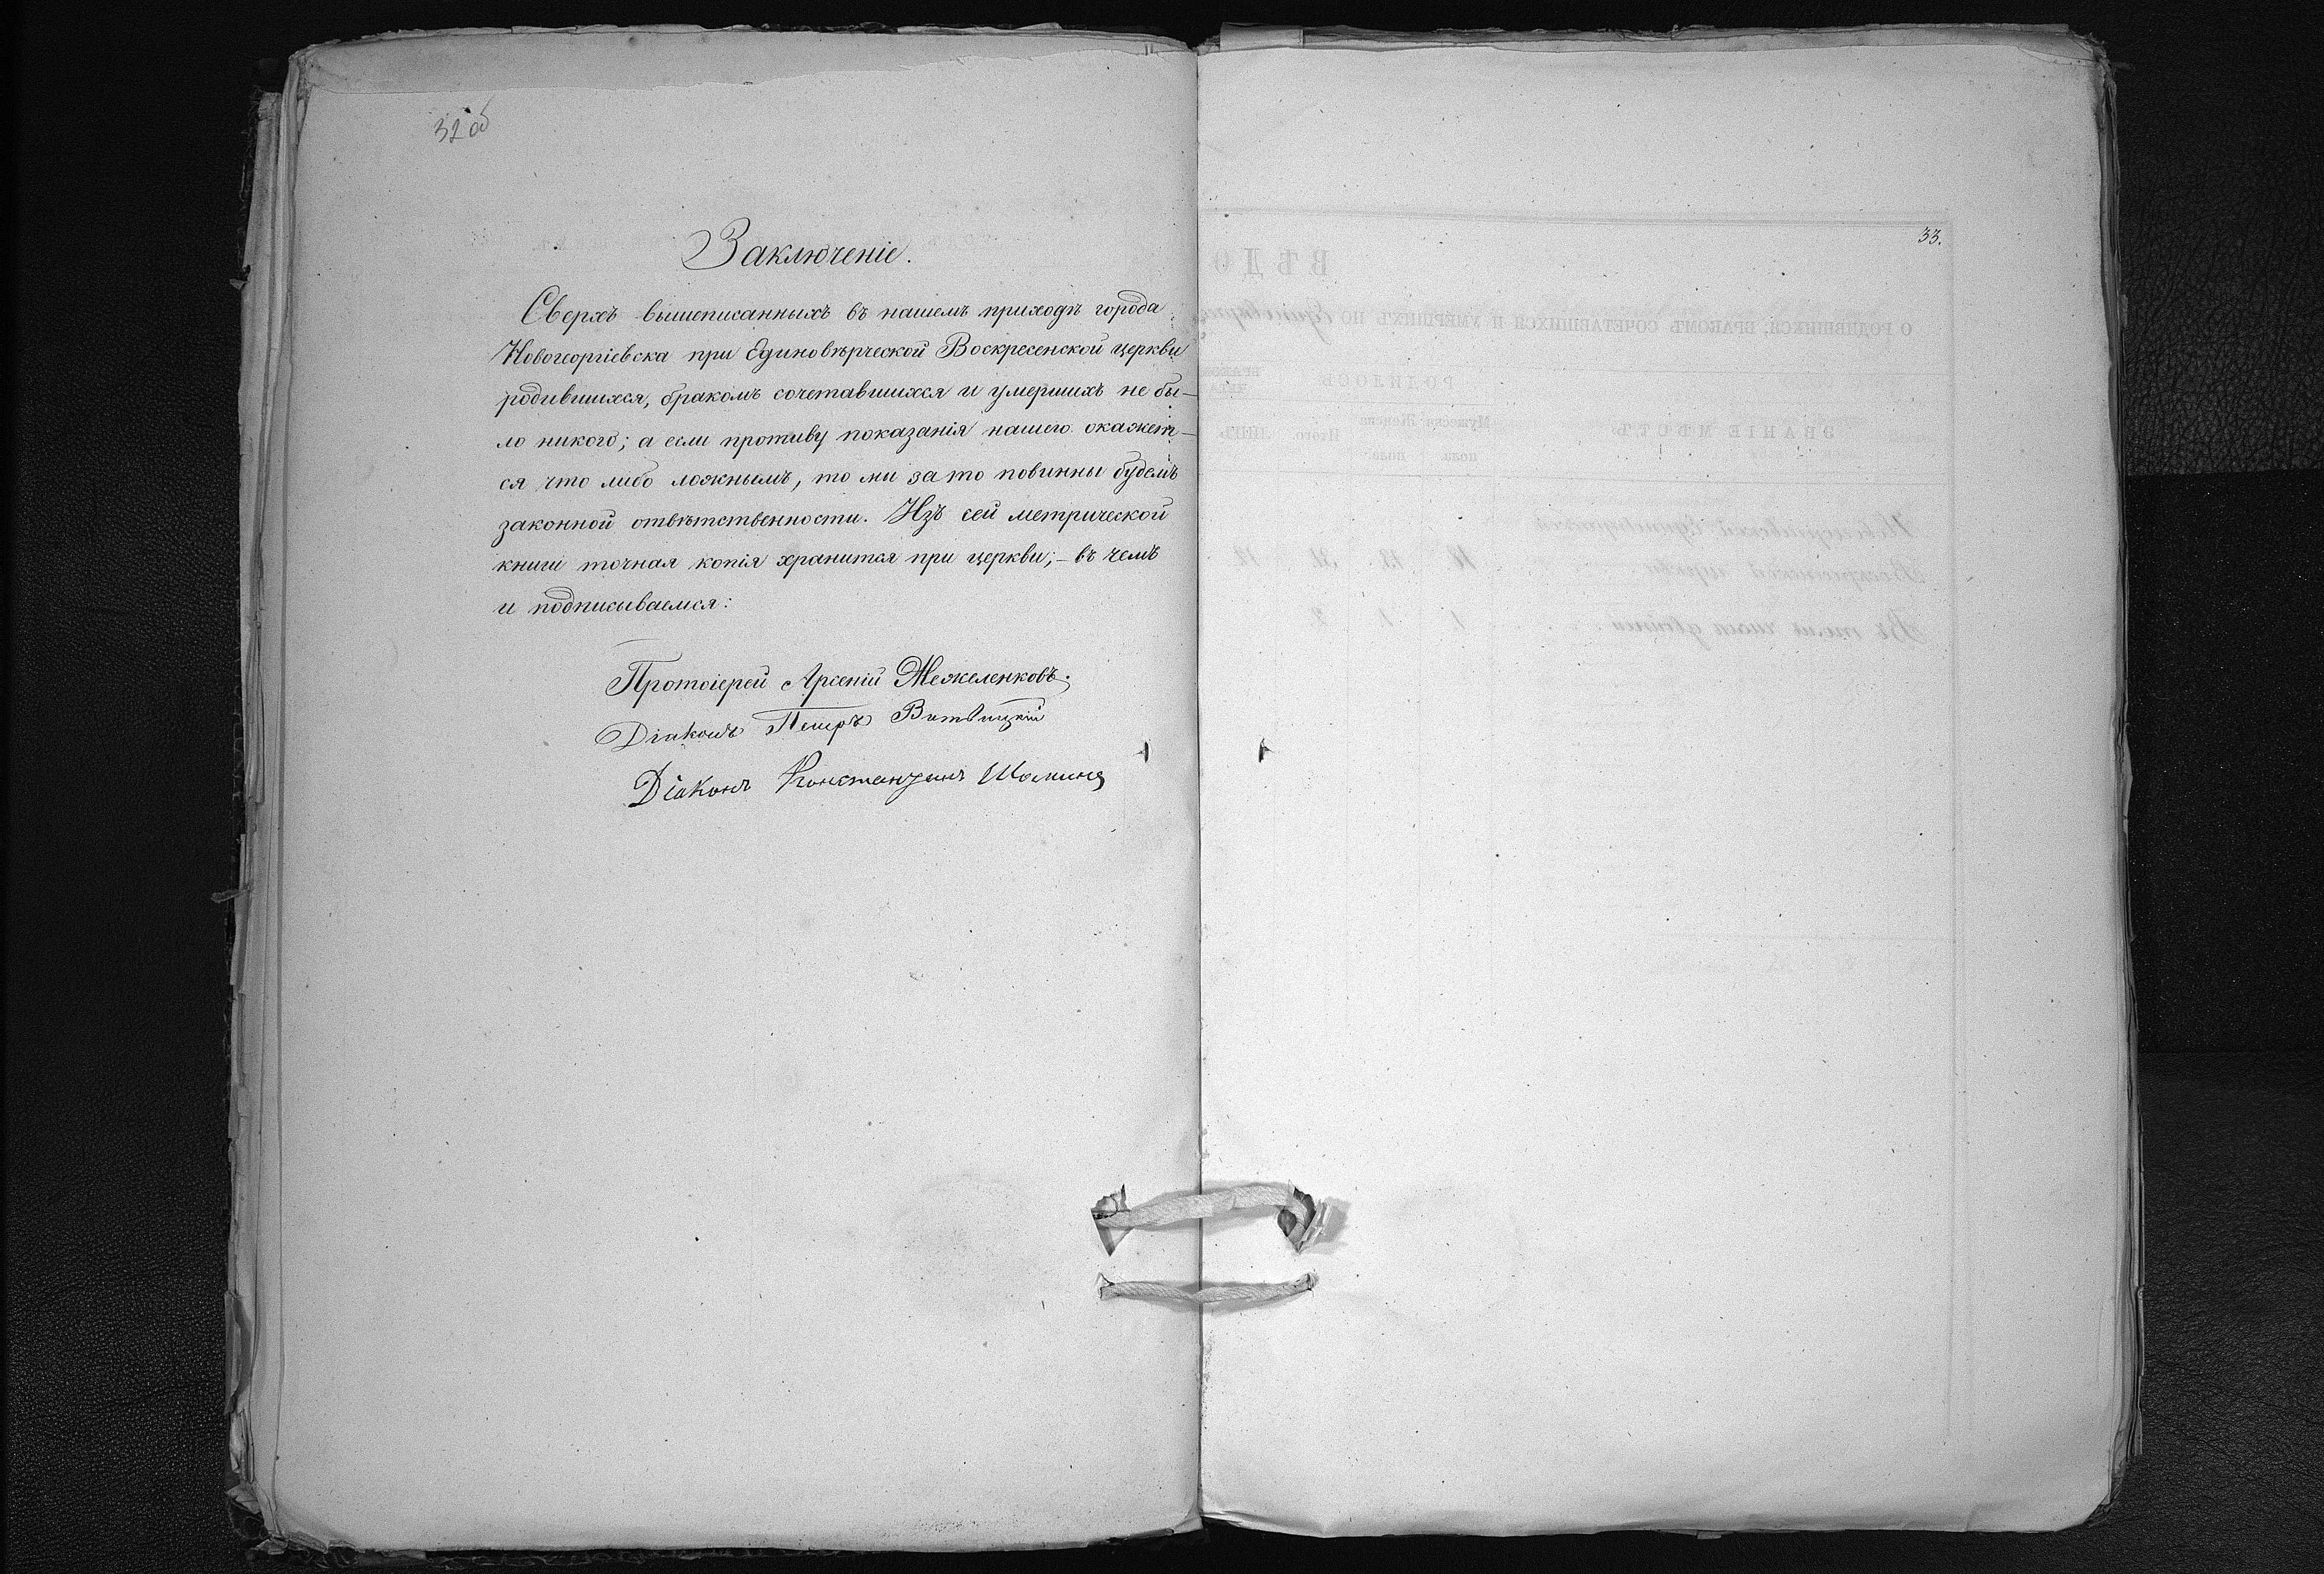 32 об
Заключеніе.
Сверхъ вышеписанныхъ въ нашемъ приходѣ города
Новогеоргіевска при Единовѣрческой Воскресенской церкви
родившихся, бракомъ сочетавшихся и умершихъ не бы-
ло никого; а если противу показанія нашего окажет-
ся что либо ложнымъ, то мы за то повинны будемъ
законной отвѣтственности. Изъ сей метрической
книги точная копія хранится при церкви;- въ чемъ
и подписываемся:
Протоіерей Арсеній Межеленковъ.
Діаконъ Петръ
Діаконъ Константинъ
33.
ВѢДО
О РОДИВШИХСЯ, БРАКОМЪ СОЧЕТАВШИХСЯ И УМЕРШИХЪ ПО
ЗВАНІЕ МѢСТЪ
РОДИЛОСЬ
Итого.
Новогеоргіевской Единовѣрческой
Воскресенской церкви
Въ томъ числѣ двойни 1 1 2